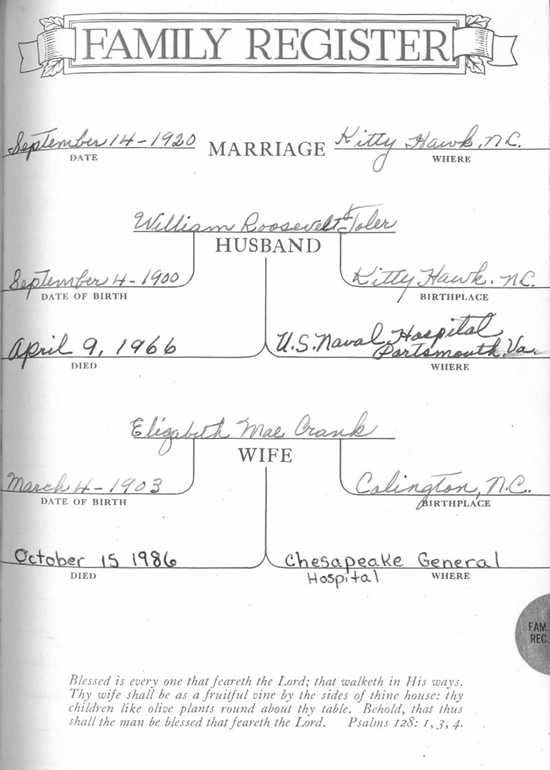 FAMILY REGISTER
September 14-1920 MARRIAGE Kitty Hawk, N.C.
DATE WHERE
William Roosevelt Toler
HUSBAND
September 4-1900 Kitty Hawk. N.C.
DATE OF BIRTH BIRTHPLACE
April 9, 1966 U.S. Naval Hospital
Portsmouth, Va.
DIED WHERE
Elizabeth Mae Crank
WIFE
March 4-1903 Colington, N.C.
DATE OF BIRTH BIRTHPLACE
October 15 1986 Chesapeake General
Hospital
DIED WHERE
FAM.
REC.
Blessed is every one that feareth the Lord; that walketh in His ways.
Thy wife shall be as a fruitful vine by the sides of thine house: thy
children like olive plants round about thy table. Behold, that thus
shall the man be blessed that feareth the Lord. Psalms 128: 1, 3, 4.